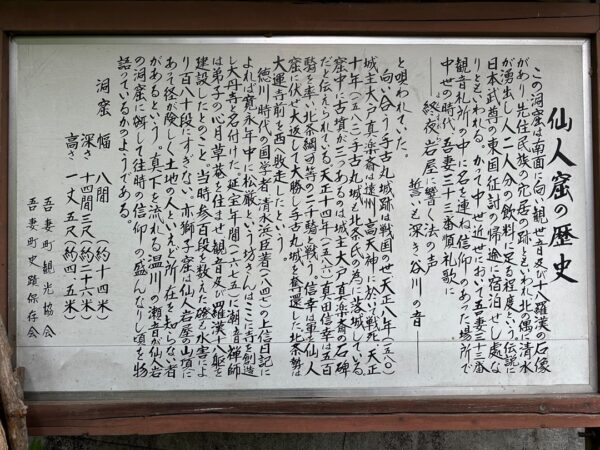 仙人窟の歴史
この洞窟は南面に向い観世音及び十八羅漢の石像
があり、先住民族の穴居の跡とも いわれ北の隅に清水
が湧出し一人二人分の飲料に足る程度という。伝説に
日本武尊の東国征討の帰途に宿泊せし処な
りともいわれる。かつて中世近世において吾妻三十三番
観音札所の中に名を連ね信仰のあった場所で
中世の時代、吾妻三十三番順礼歌に
終夜岩屋に響く法の声
誓いも深き谷川の音
と唄われていた。
向い合う手古丸城跡は戦国の世天正八年(一五八〇)
城主大戸真楽斎は遠州高天神に於いて戦死、天正
十年(一五八二)手古丸城が北条氏の為に落城している。
窟中に古墳が二つあるのは城主大戸真楽斎の石碑
だと伝えられている。天正十四年(一五八六)真田信幸は五百
騎を率い北条綱司等の二千騎と戦う。信幸は軍を仙人
窟に伏せ大返して大勝し手古丸城を奪還した。北条勢は
大運寺前を西へ敗走したという。
徳川時代の国学者清水浜臣著(一八四七)の上信日記に
よれば寛永年中に松厳という坊さんはここに寺を創造
し大丹寺と名付けた。延宝年間(一六七五)に潮音禅師
は弟子の心月草庵を住ませ観世音及び羅漢十八躯を
建設したとのこと。当時参百段を数えた磴も水害によ
り百八十段にすぎない。亦獅子窟は仙人岩屋の山頂に
あって径が険しく土地の人といえども所在を知らない者
があるという。真下を流れる温川の瀬音が仙人岩
の洞窟に谺して往時の信仰の盛んなりし頃を物
語っているかのようである。
洞窟 幅 八間 (約十四米)
深さ 十四間三尺(約二十六米)
高さ 一丈五尺(約四、五米)
吾妻町観光協会
吾妻町史蹟保存会